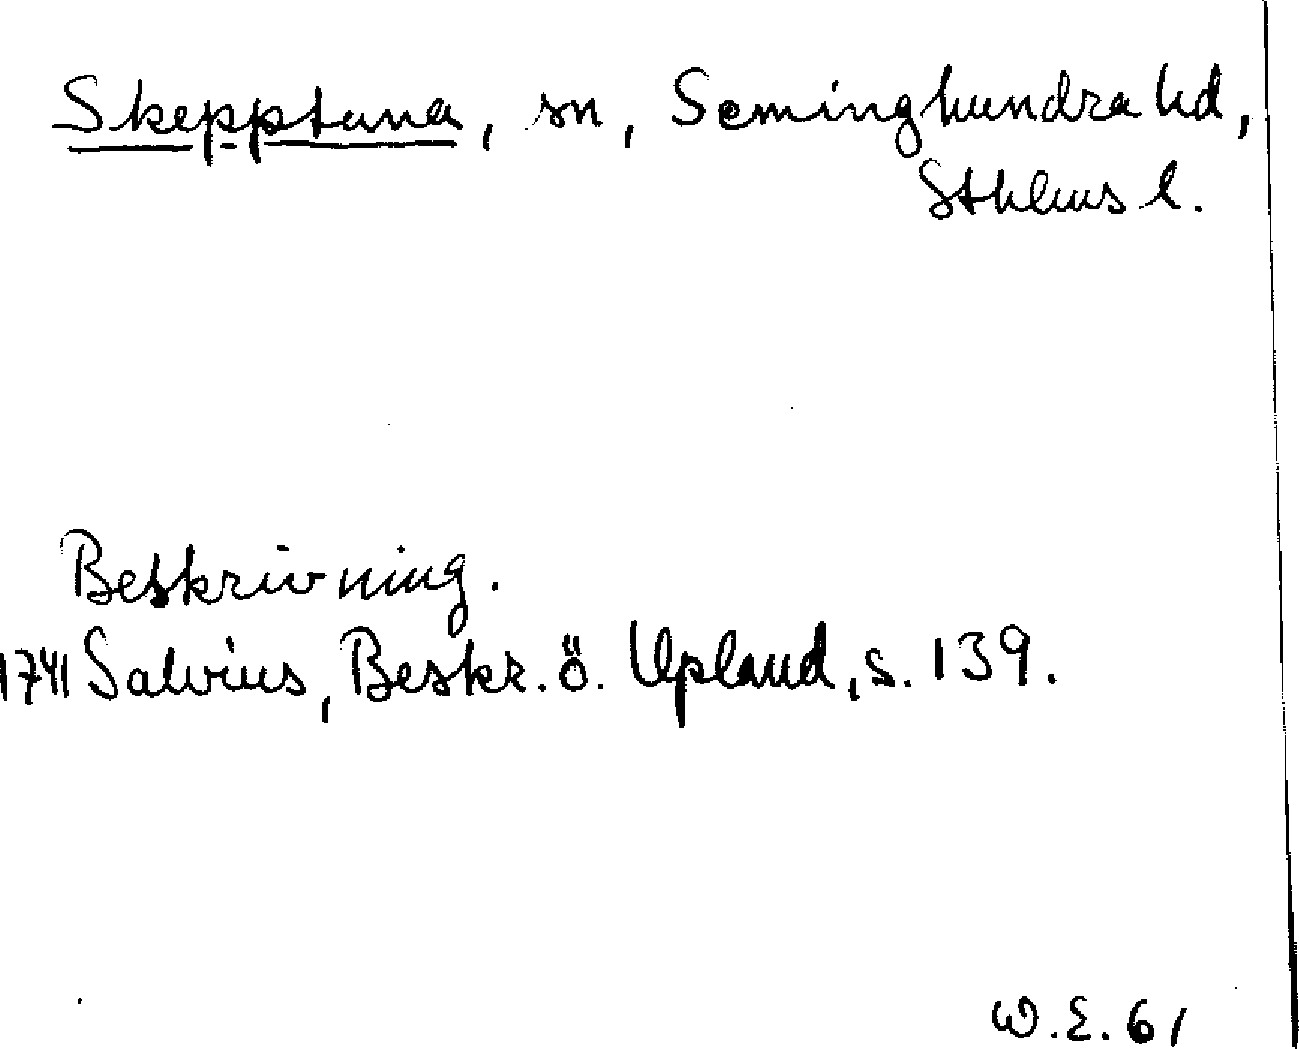 Skepptuna, sn, Seminghundra hd,
Sthlms l.
Beskrivning.
1741 Salvius, Beskr. ö. Upland, s. 139.
W.E. 61